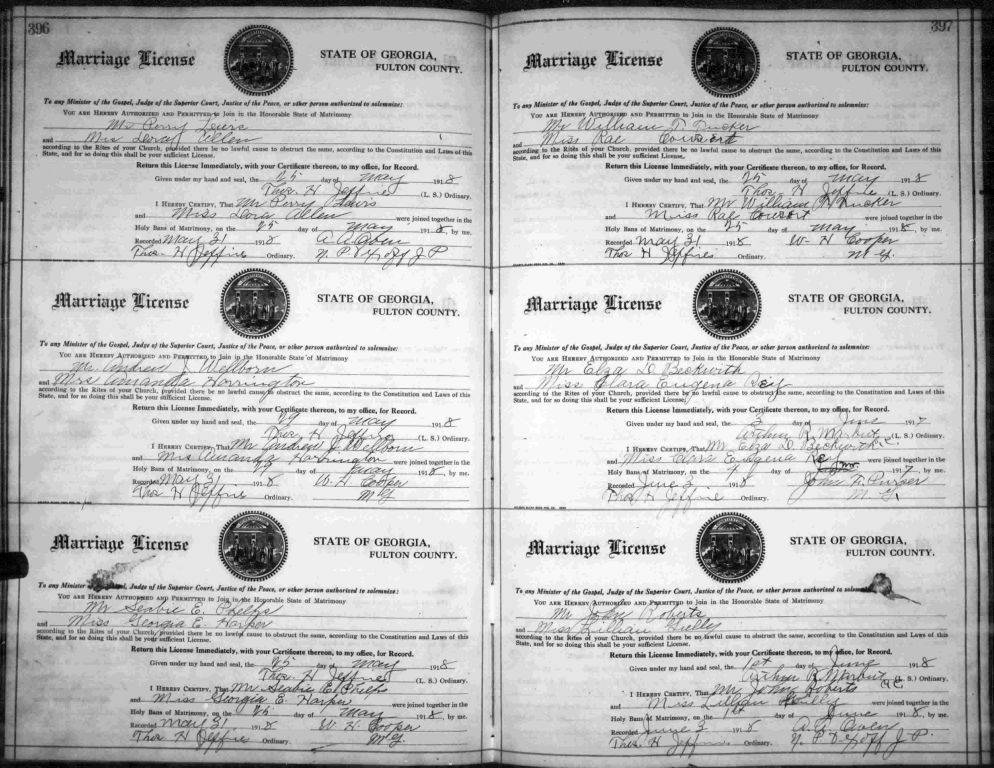 396
Marriage License
STATE OF GEORGIA,
FULTON COUNTY.
To any Minister of the Gospel, Judge of the Superior Court, Justice of the Peace, or other person authorized to solemnize:
YOU ARE HEREBY AUTHORIZED AND PERMITTED to Join in the Honorable State of Matrimony
Mr Perry
and Miss Leora Allen
according to the Rites of your Church, provided there be no lawful cause to obstruct the same, according to the Constitution and Laws of this
State, and for so doing this shall be your sufficient License.
Return this License Immediately, with your Certificate thereon, to my office, for Record.
Given under my hand and seal, the 25 day of May 1918
Thos. H Jeffries (L. S.) Ordinary.
I HEREBY CERTIFY, That Mr Perry
and Miss Leora Allen were joined together in the
Holy Bans of Matrimony, on the 25 day of May 1918, by me.
Recorded May 31 1918
Thos H Jeffries Ordinary. J P
Marriage License
STATE OF GEORGIA,
FULTON COUNTY.
To any Minister of the Gospel, Judge of the Superior Court, Justice of the Peace, or other person authorized to solemnize:
YOU ARE HEREBY AUTHORIZED AND PERMITTED to Join in the Honorable State of Matrimony
Mr Andrew J Wellborn
and Mrs Amanda Harrington
according to the Rites of your Church, provided there be no lawful cause to obstruct the same, according to the Constitution and Laws of this
State, and for so doing this shall be your sufficient License.
Return this License Immediately, with your Certificate thereon, to my office, for Record.
Given under my hand and seal, the 29 day of May 1918
Thos. H Jeffries (L. S.) Ordinary.
I HEREBY CERTIFY, That Mr Andrew J Wellborn
and Mrs Amanda Harrington were joined together in the
Holy Bans of Matrimony, on the 29 day of May 1918, by me.
Recorded May 31 1918 W. H Cooper
Thos H Jeffries Ordinary. M G
Marriage License
STATE OF GEORGIA,
FULTON COUNTY.
To any Minister of the Gospel, Judge of the Superior Court, Justice of the Peace, or other person authorized to solemnize:
YOU ARE HEREBY AUTHORIZED AND PERMITTED to Join in the Honorable State of Matrimony
Mr Seabie E. Phelps
and Miss Georgia E. Harper
according to the Rites of your Church, provided there be no lawful cause to obstruct the same, according to the Constitution and Laws of this
State, and for so doing this shall be your sufficient License.
Return this License Immediately, with your Certificate thereon, to my office, for Record.
Given under my hand and seal, the 25 day of May 1918
Thos. H Jeffries (L. S.) Ordinary.
I HEREBY CERTIFY, That Mr Seabie E Phelps
and Miss Georgia E. Harper were joined together in the
Holy Bans of Matrimony, on the 25 day of May 1918, by me.
Recorded May 31 1918 W H Cooper
Thos H Jeffries Ordinary. M G.
397
Marriage License
STATE OF GEORGIA,
FULTON COUNTY.
To any Minister of the Gospel, Judge of the Superior Court, Justice of the Peace, or other person authorized to solemnize:
YOU ARE HEREBY AUTHORIZED AND PERMITTED to Join in the Honorable State of Matrimony
Mr William
and Miss Rae Cowsert
according to the Rites of your Church, provided there be no lawful cause to obstruct the same, according to the Constitution and Laws of this
State, and for so doing this shall be your sufficient License.
Return this License Immediately, with your Certificate thereon, to my office, for Record.
Given under my hand and seal, the 25 day of May 1918
Thos. H Jeffries (L. S.) Ordinary.
I HEREBY CERTIFY, That Mr William
and Miss Rae Cowsert were joined together in the
Holy Bans of Matrimony, on the 25 day of May 1918, by me.
Recorded May 31 1918 W. H Cooper
Thos H Jeffries Ordinary. M G.
Marriage License
STATE OF GEORGIA,
FULTON COUNTY.
To any Minister of the Gospel, Judge of the Superior Court, Justice of the Peace, or other person authorized to solemnize:
YOU ARE HEREBY AUTHORIZED AND PERMITTED to Join in the Honorable State of Matrimony
Mr Elza D Beckwith
and Miss Clara Eugena
according to the Rites of your Church, provided there be no lawful cause to obstruct the same, according to the Constitution and Laws of this
State, and for so doing this shall be your sufficient License.
Return this License Immediately, with your Certificate thereon, to my office, for Record.
Given under my hand and seal, the 3 day of June 191
Arthur R. Marbut (L. S.) Ordinary.
I HEREBY CERTIFY, That Mr Elza D Beckwith
and Miss Clara Eugena were joined together in the
Holy Bans of Matrimony, on the day of 191 , by me.
Recorded June 3 1918 John F. Purser
Thos H Jeffries Ordinary. M G.
Marriage License
STATE OF GEORGIA,
FULTON COUNTY.
To any Minister of the Gospel, Judge of the Superior Court, Justice of the Peace, or other person authorized to solemnize:
YOU ARE HEREBY AUTHORIZED AND PERMITTED to Join in the Honorable State of Matrimony
Mr John Roberts
and Miss Lillian
according to the Rites of your Church, provided there be no lawful cause to obstruct the same, according to the Constitution and Laws of this
State, and for so doing this shall be your sufficient License.
Return this License Immediately, with your Certificate thereon, to my office, for Record.
Given under my hand and seal, the 1st day of June 1918
Arthur R. Marbut (L. S.) Ordinary.
I HEREBY CERTIFY, That Mr John Roberts
and Miss Lillian were joined together in the
Holy Bans of Matrimony, on the 1st day of June 1918, by me.
Recorded June 3 1918
Thos. H Jeffries Ordinary. J P.